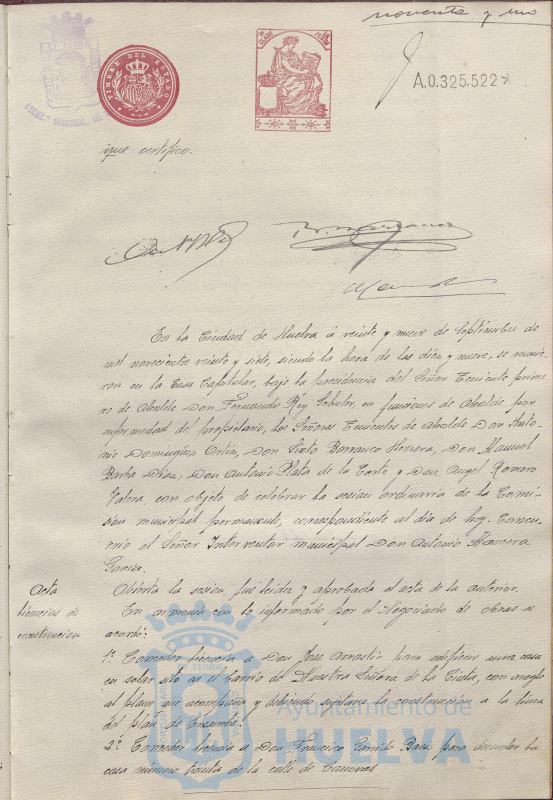 noventa y uno
TIMBRE DEL ESTADO
A.0.325.522
que certifico.
En la Ciudad de Huelva á veinte y nueve de Septiembre de
mil novecientos veinte y siete, siendo la hora de las diez y nueve, se reunie-
ron en la Casa Capitular, bajo la presidencia del Señor Teniente prime-
ro de Alcalde Don Fernando Rey Schuler, en funciones de Alcalde por
enfermedad del propietario, los Señores Tenientes de Alcalde Don Anto-
nio Dominguez Ortiz, Don Sixto Barranco Herrera, Don Manuel
Barba Diaz, Don Antonio Plata de la Corte y Don Angel Romero
Valera con objeto de celebrar la sesion ordinaria de la Comi-
sion municipal permanente, correspondiente al dia de hoy. Concu-
rrió el Señor Interventor municipal Don Antonio
Garcia.
Acta
Abierta la sesion fué leida y aprobada el acta de la anterior.
licencias de
construccion
En armonia con lo informado por el Negociado de obras se
acordó:
1º Conceder licencia a Don José para edificar una casa
en solar sito en el barrio de Nuestra Señora de la Cinta, con arreglo
al plano que acompaña y debiendo sujetarse la construccion a la linea
del plan de Ensanche.
2º Conceder licencia a Don Francisco Garrido para la
casa numero treinta de la calle de
Ayuntamiento de
HUELVA